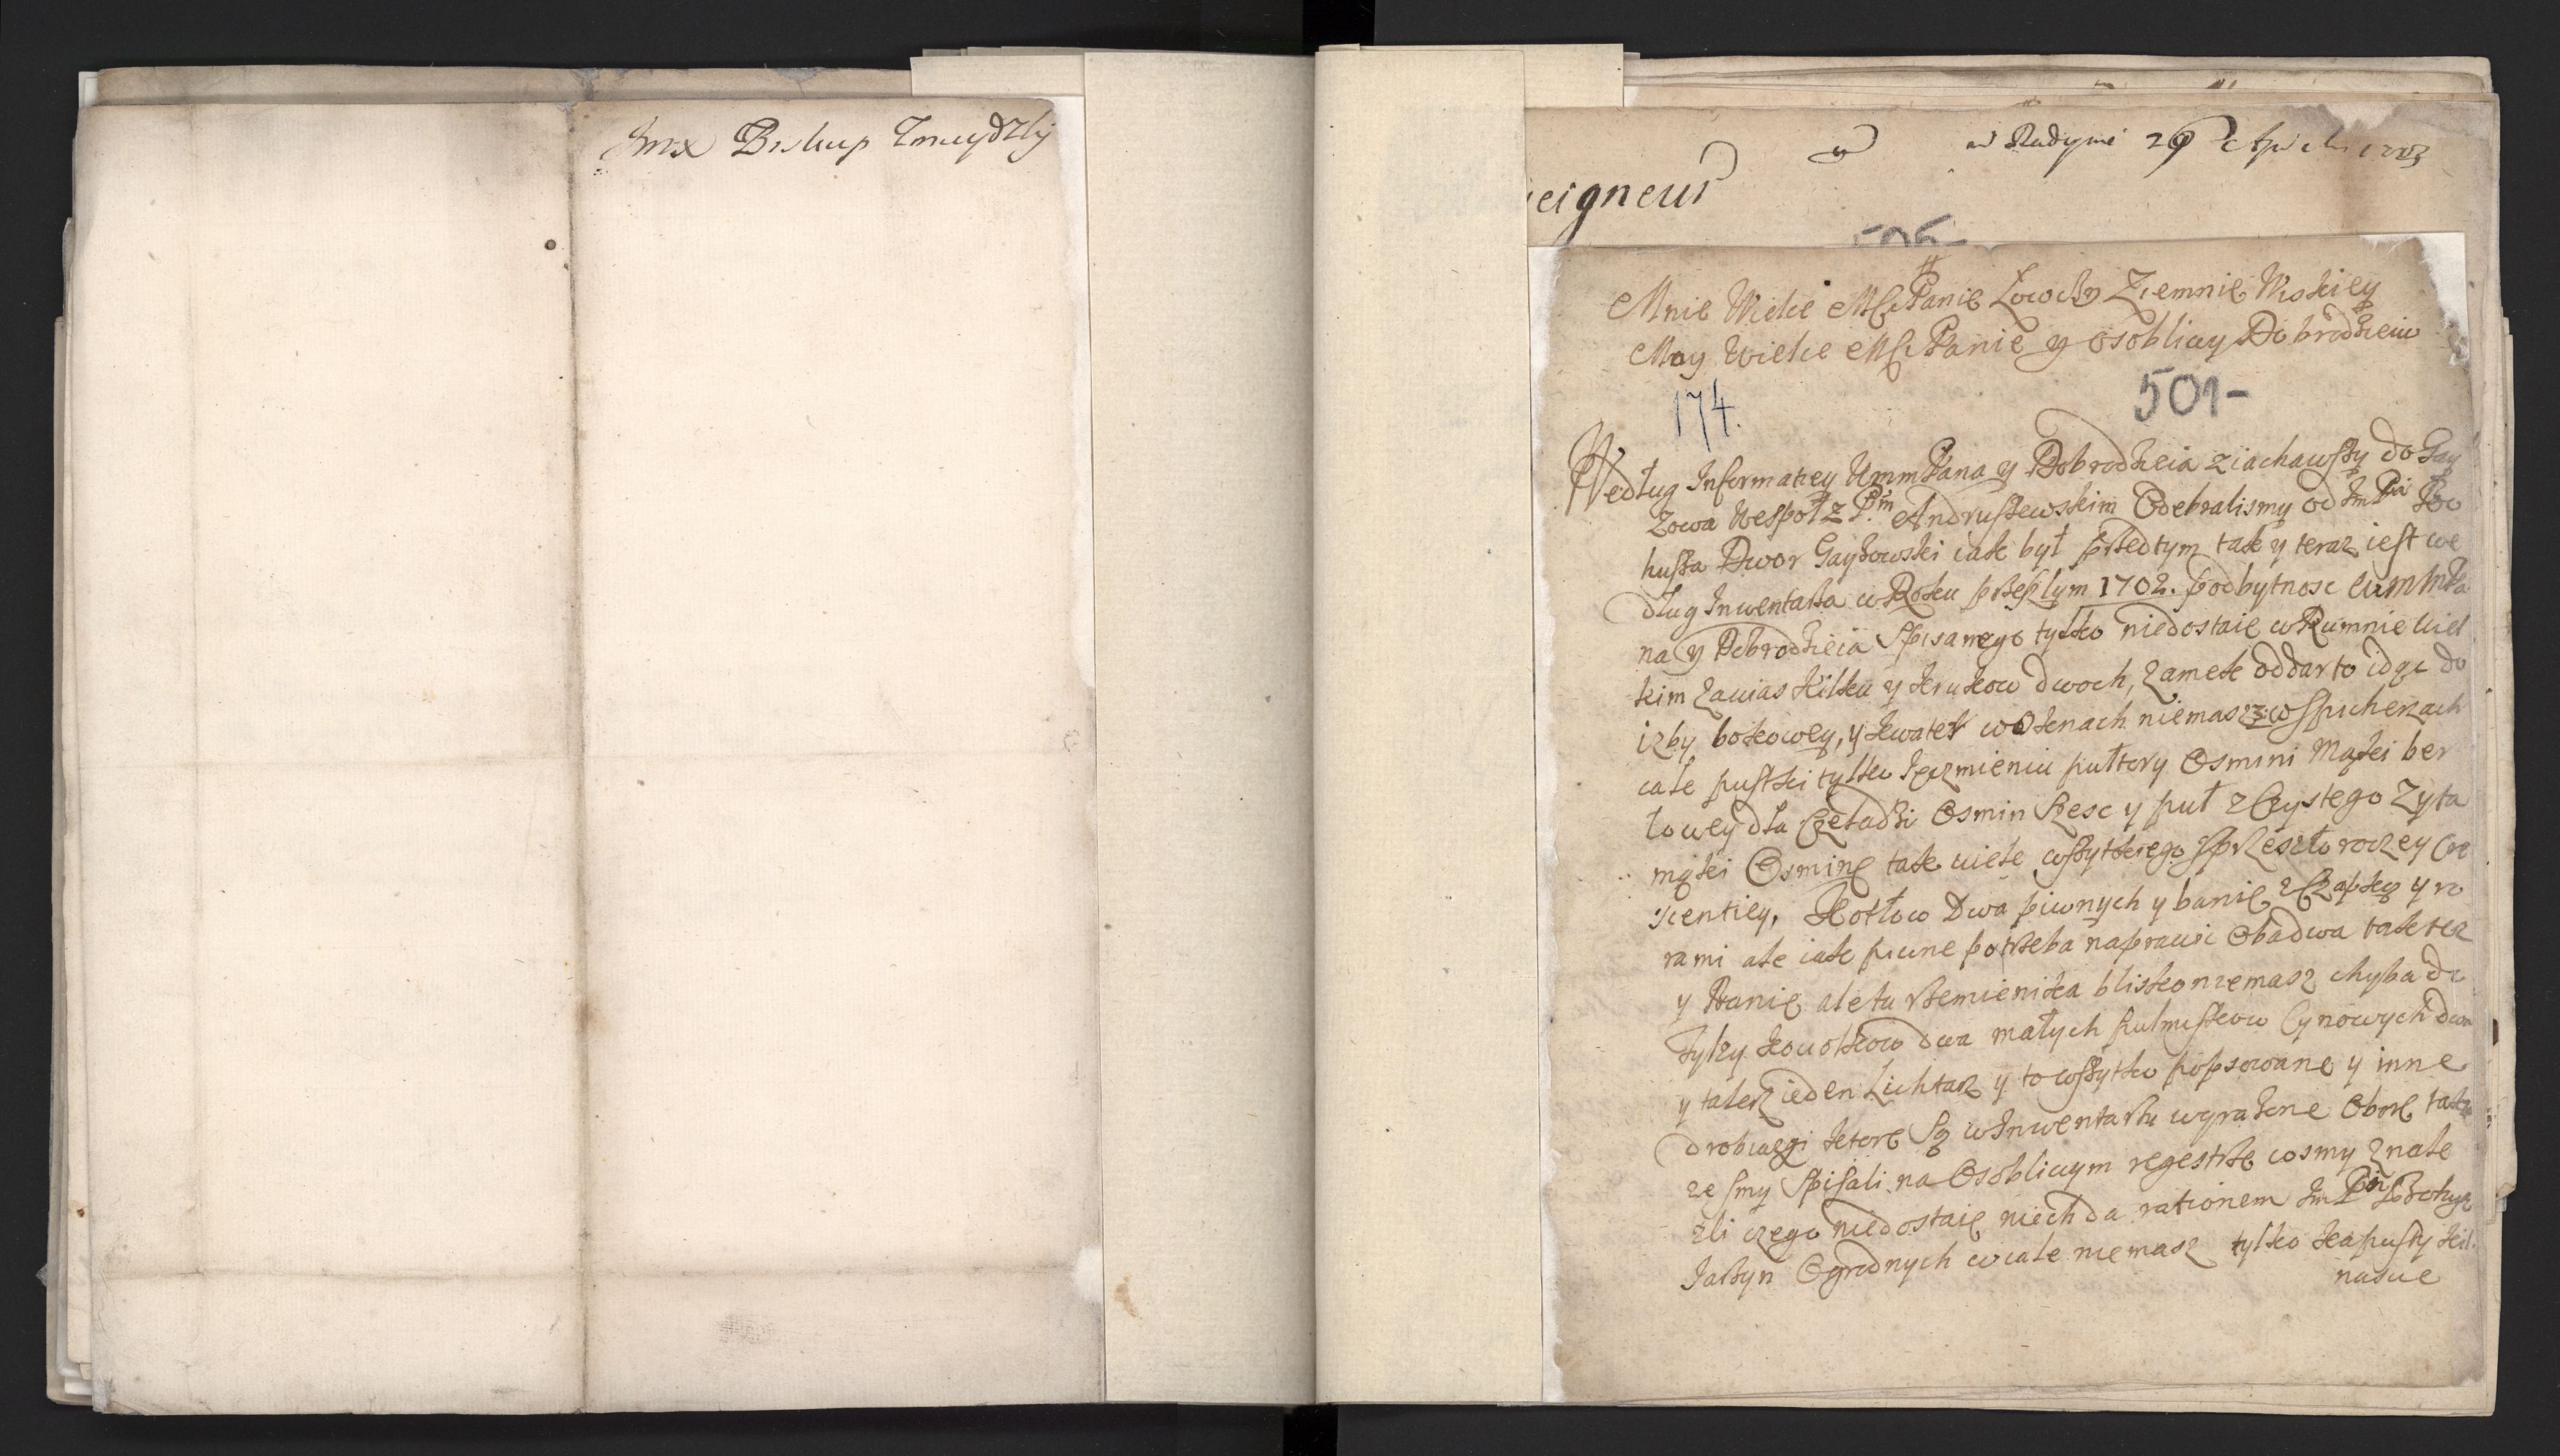 Jmx Biskup Zmuydzky
w Radymie 29 Aprilis 1703
eigneur
Mnie Wielce Mści Panie Łowczy Ziemnie Wiskiey
Moy Wielce Mści Panie y Osobliwy Dobrodzieiu
501-
174.
Według Informatiey WmmPana y Dobrodzieia ziachawszy do Gay
zowa Wespoł z P.m Andruszewskim Odebralismy od Jm Pa
husza Dwor Gayzowski iak był przedtym tak y teraz iest we
dlug Inwentarza w Roku przeszlym 1702. pod bytnosc
na y Dobrodzieia Spisanego tylko niedostaie w Rumnie wiel
kim zawias kilku y krukow dwoch, zamek oddarto idąc do
izby bokowey, y kwater w Oknach niemasz w Spicherzach
cale pustki tylko Jęczmieniu pułtory Osmini Mąki ber
łowey dla Czeladzi Osmin Szesc y puł z Czystego Zyta
mąki Osminę tak wiele wszytkiego z przeszło roczey Cre
scentiey, Kotłow Dwa piwnych y banię z Czapką y ru
rami ale iak piwne potrzeba naprawic Obadwa tak tez
y Banię ale tu rzemieniska blisko niemasz chyba do
Tylzy konotkow dwa małych pulmiskow Cynowych dwa
y talerz ieden Lichtarz y to wszytko popsowane y inne
drobiazgi ktore Są w Inwentarzu wyrazone Oborę takze
ze smy Spisali na Osobliwym regestrze cosmy znale
zli czego niedostaie niech da rationem Jm Pan
Jarzyn Ogrodnych wcale niemasz tylko kapusty kil
nascie